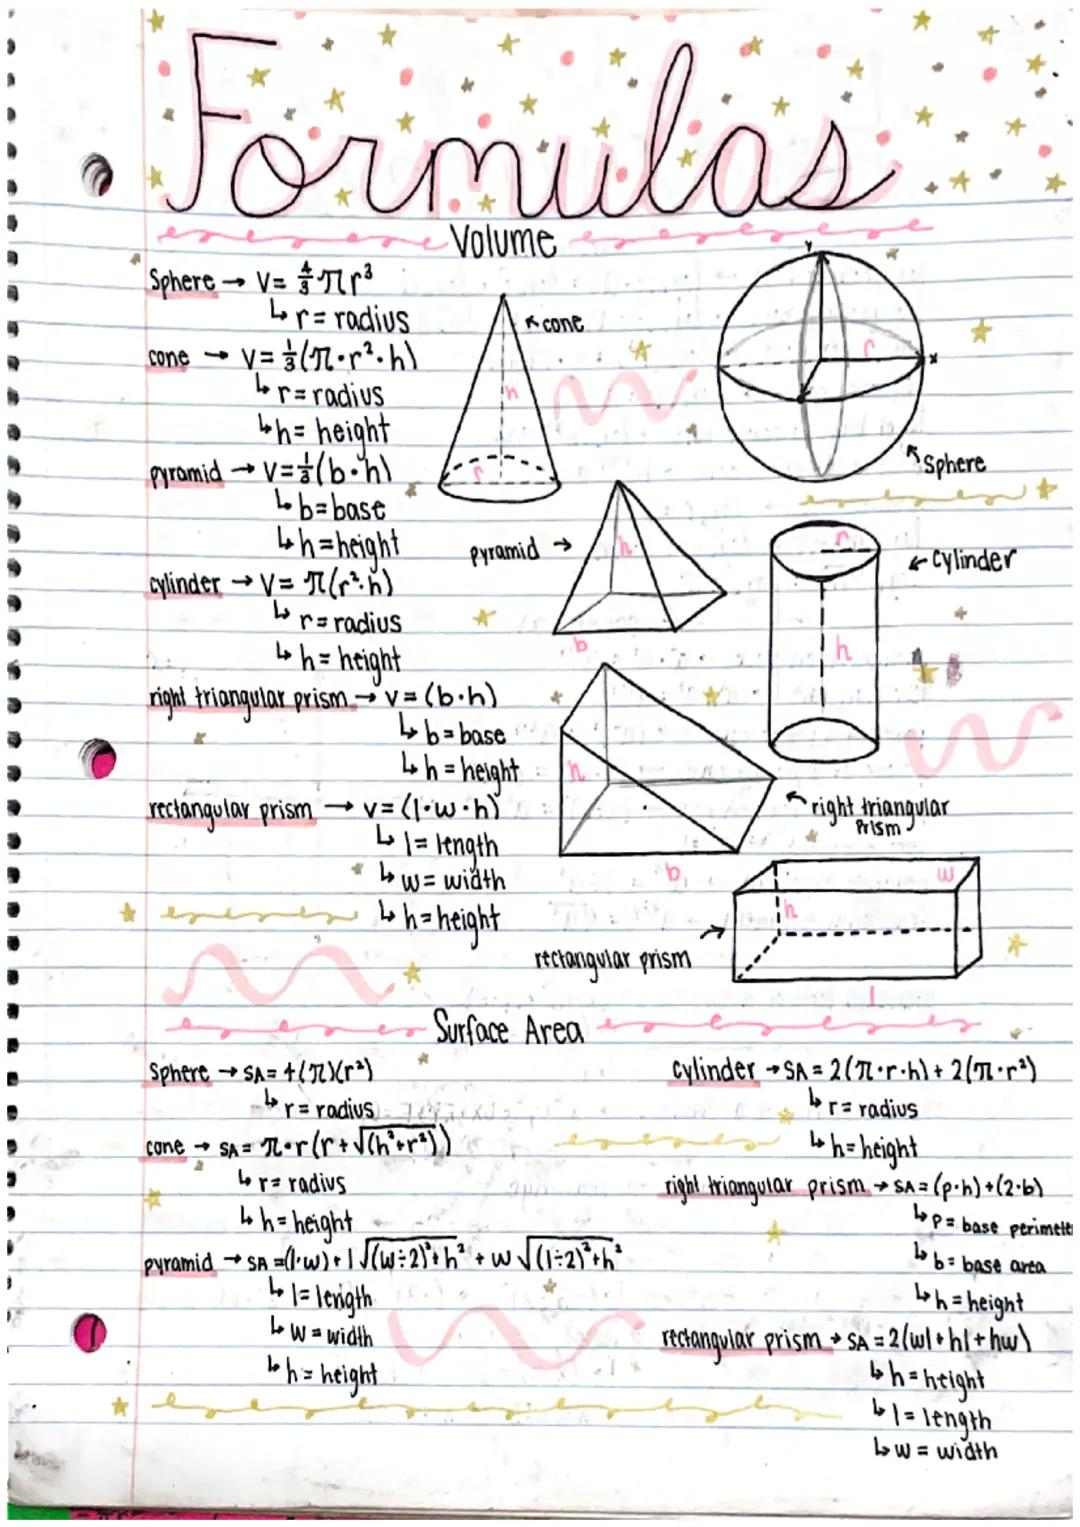 Formulas
Volume
Sphere → V= 4/3 πr³
↳ r= radius
cone → V= 1/3(π·r²·h)
↳ r= radius
↳ h= height
pyramid → V=1/3(b·h)
↳ b=base
↳ h=height
cylinder → V= π(r²·h)
↳ r= radius
↳ h= height
right triangular prism → V= (b·h)
↳ b=base
↳ h=height
rectangular prism → V= (l·w·h)
↳ l= length
↳ w= width
↳ h=height
cone
h
r
y
r
x
Sphere
pyramid →
h
b
r
← Cylinder
h
h
b
right triangular
Prism
w
h
rectangular prism
l
Surface Area
Sphere → SA= 4(π)(r²)
↳ r= radius
cone → SA= π·r(r+√(h²+r²))
↳ r= radius
↳ h= height
pyramid → SA=(l·w)+l√(w÷2)²+h² + w√(l÷2)²+h²
↳ l= length
↳ w= width
↳ h= height
Cylinder → SA= 2(π·r·h)+ 2(π·r²)
↳ r= radius
↳ h= height
right triangular prism → SA=(p·h)+(2·b)
↳ P= base perimeter
↳ b= base area
↳ h= height
rectangular prism → SA=2(wl+hl+hw)
↳ h= height
↳ l= length
↳ w= width